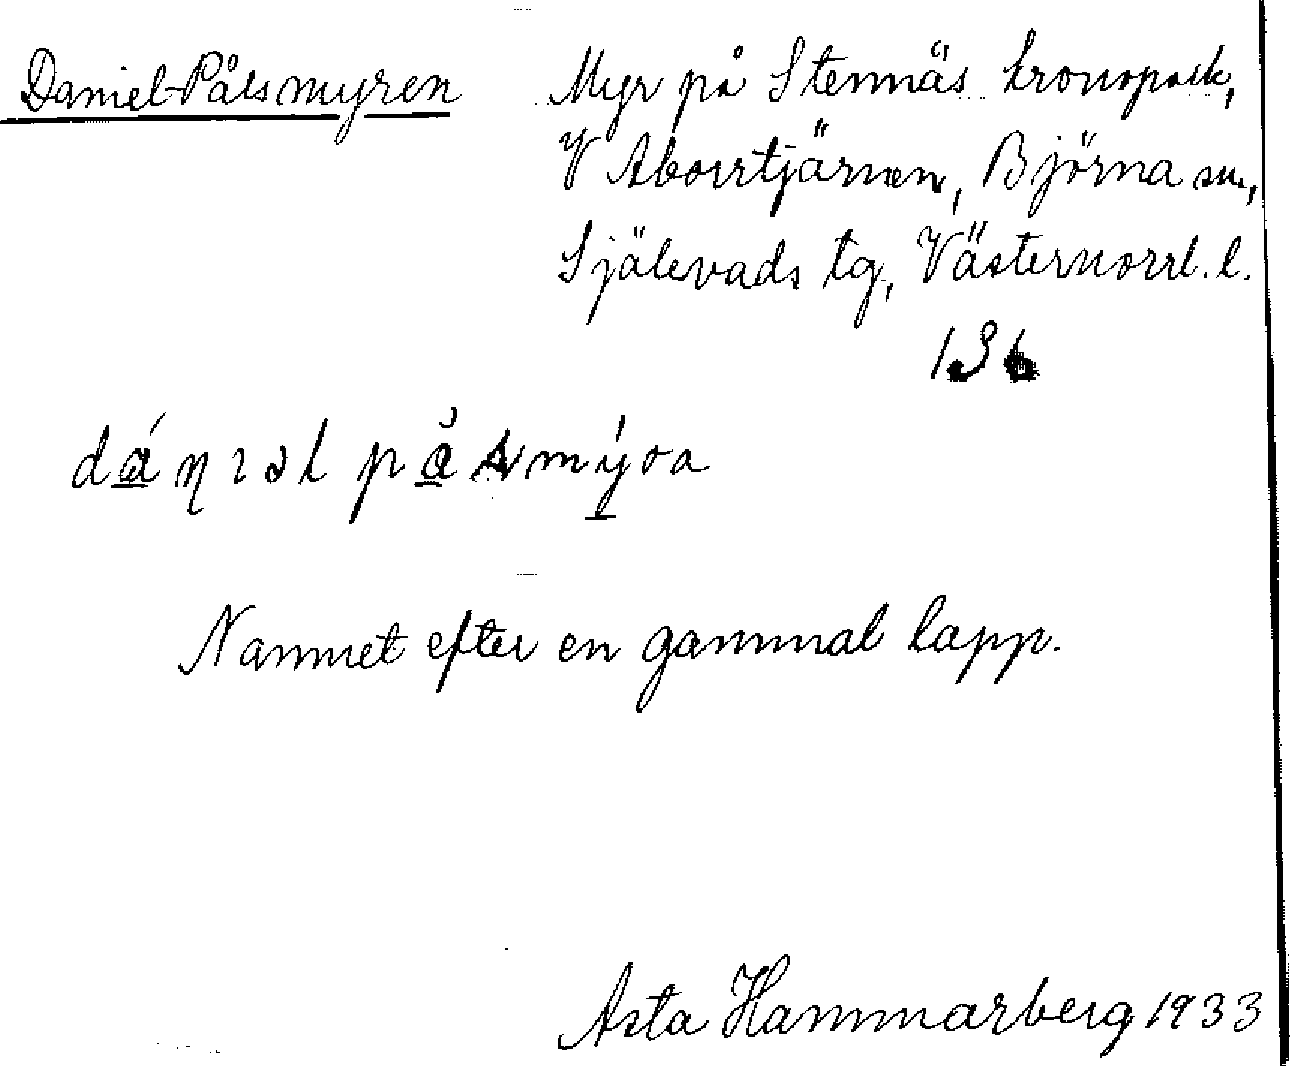 Daniel-Pålsmyren
Myr på Stennäs kronopark,
V Aborrtjärnen, Björna sn,
Själevads tg, Västernorrl. l.
136
Namnet efter en gammal lapp.
Asta Hammarberg 1933